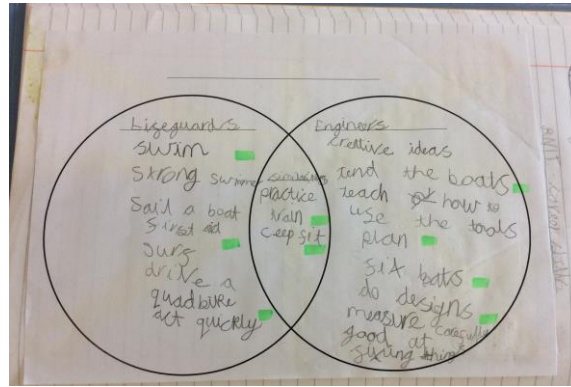 Lifeguards
swim
strong swimmer
Sail a boat
first aid
surf
drive a
quadbike
act quickly
similarities
practice
train
ceep fit
Engineers
creative ideas
the boats
teach how to
use the tools
plan
fix
do designs
measure carefully
good at
fixing things